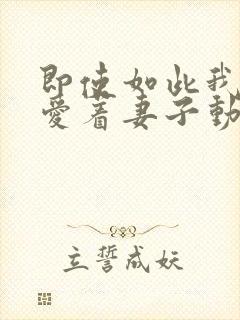 即使如此我
爱着妻子動
立誓成妖